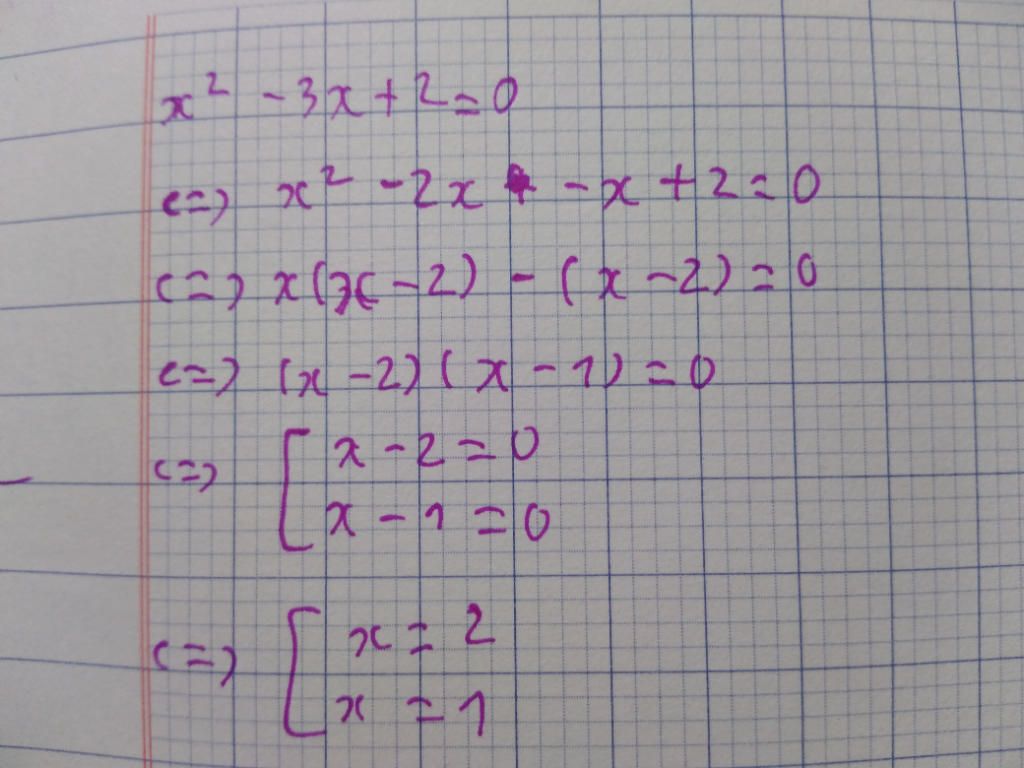 x² - 3x + 2 = 0
<=> x² - 2x - x + 2 = 0
<=> x(x - 2) - (x - 2) = 0
<=> (x - 2)(x - 1) = 0
<=> [ x - 2 = 0
x - 1 = 0
<=> [ x = 2
x = 1